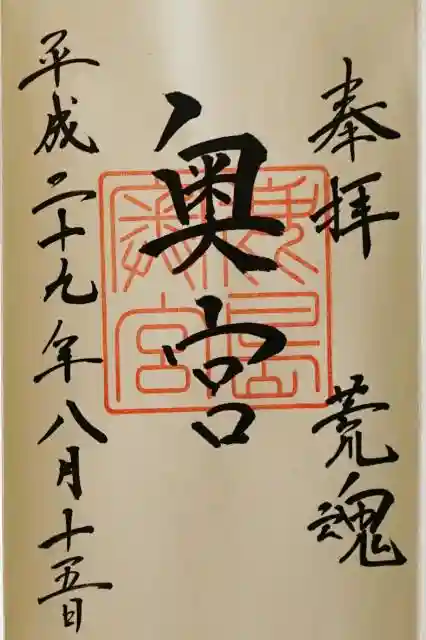 奉拝 荒魂
奥宮
鹿島奥宮
平成二十九年八月十五日